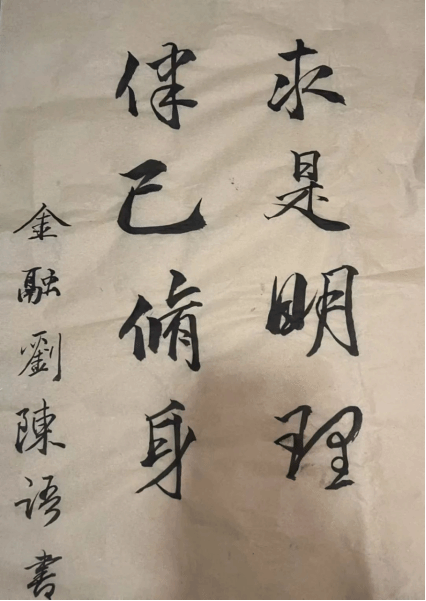 求是明理
律己脩身
金融劉陳语書